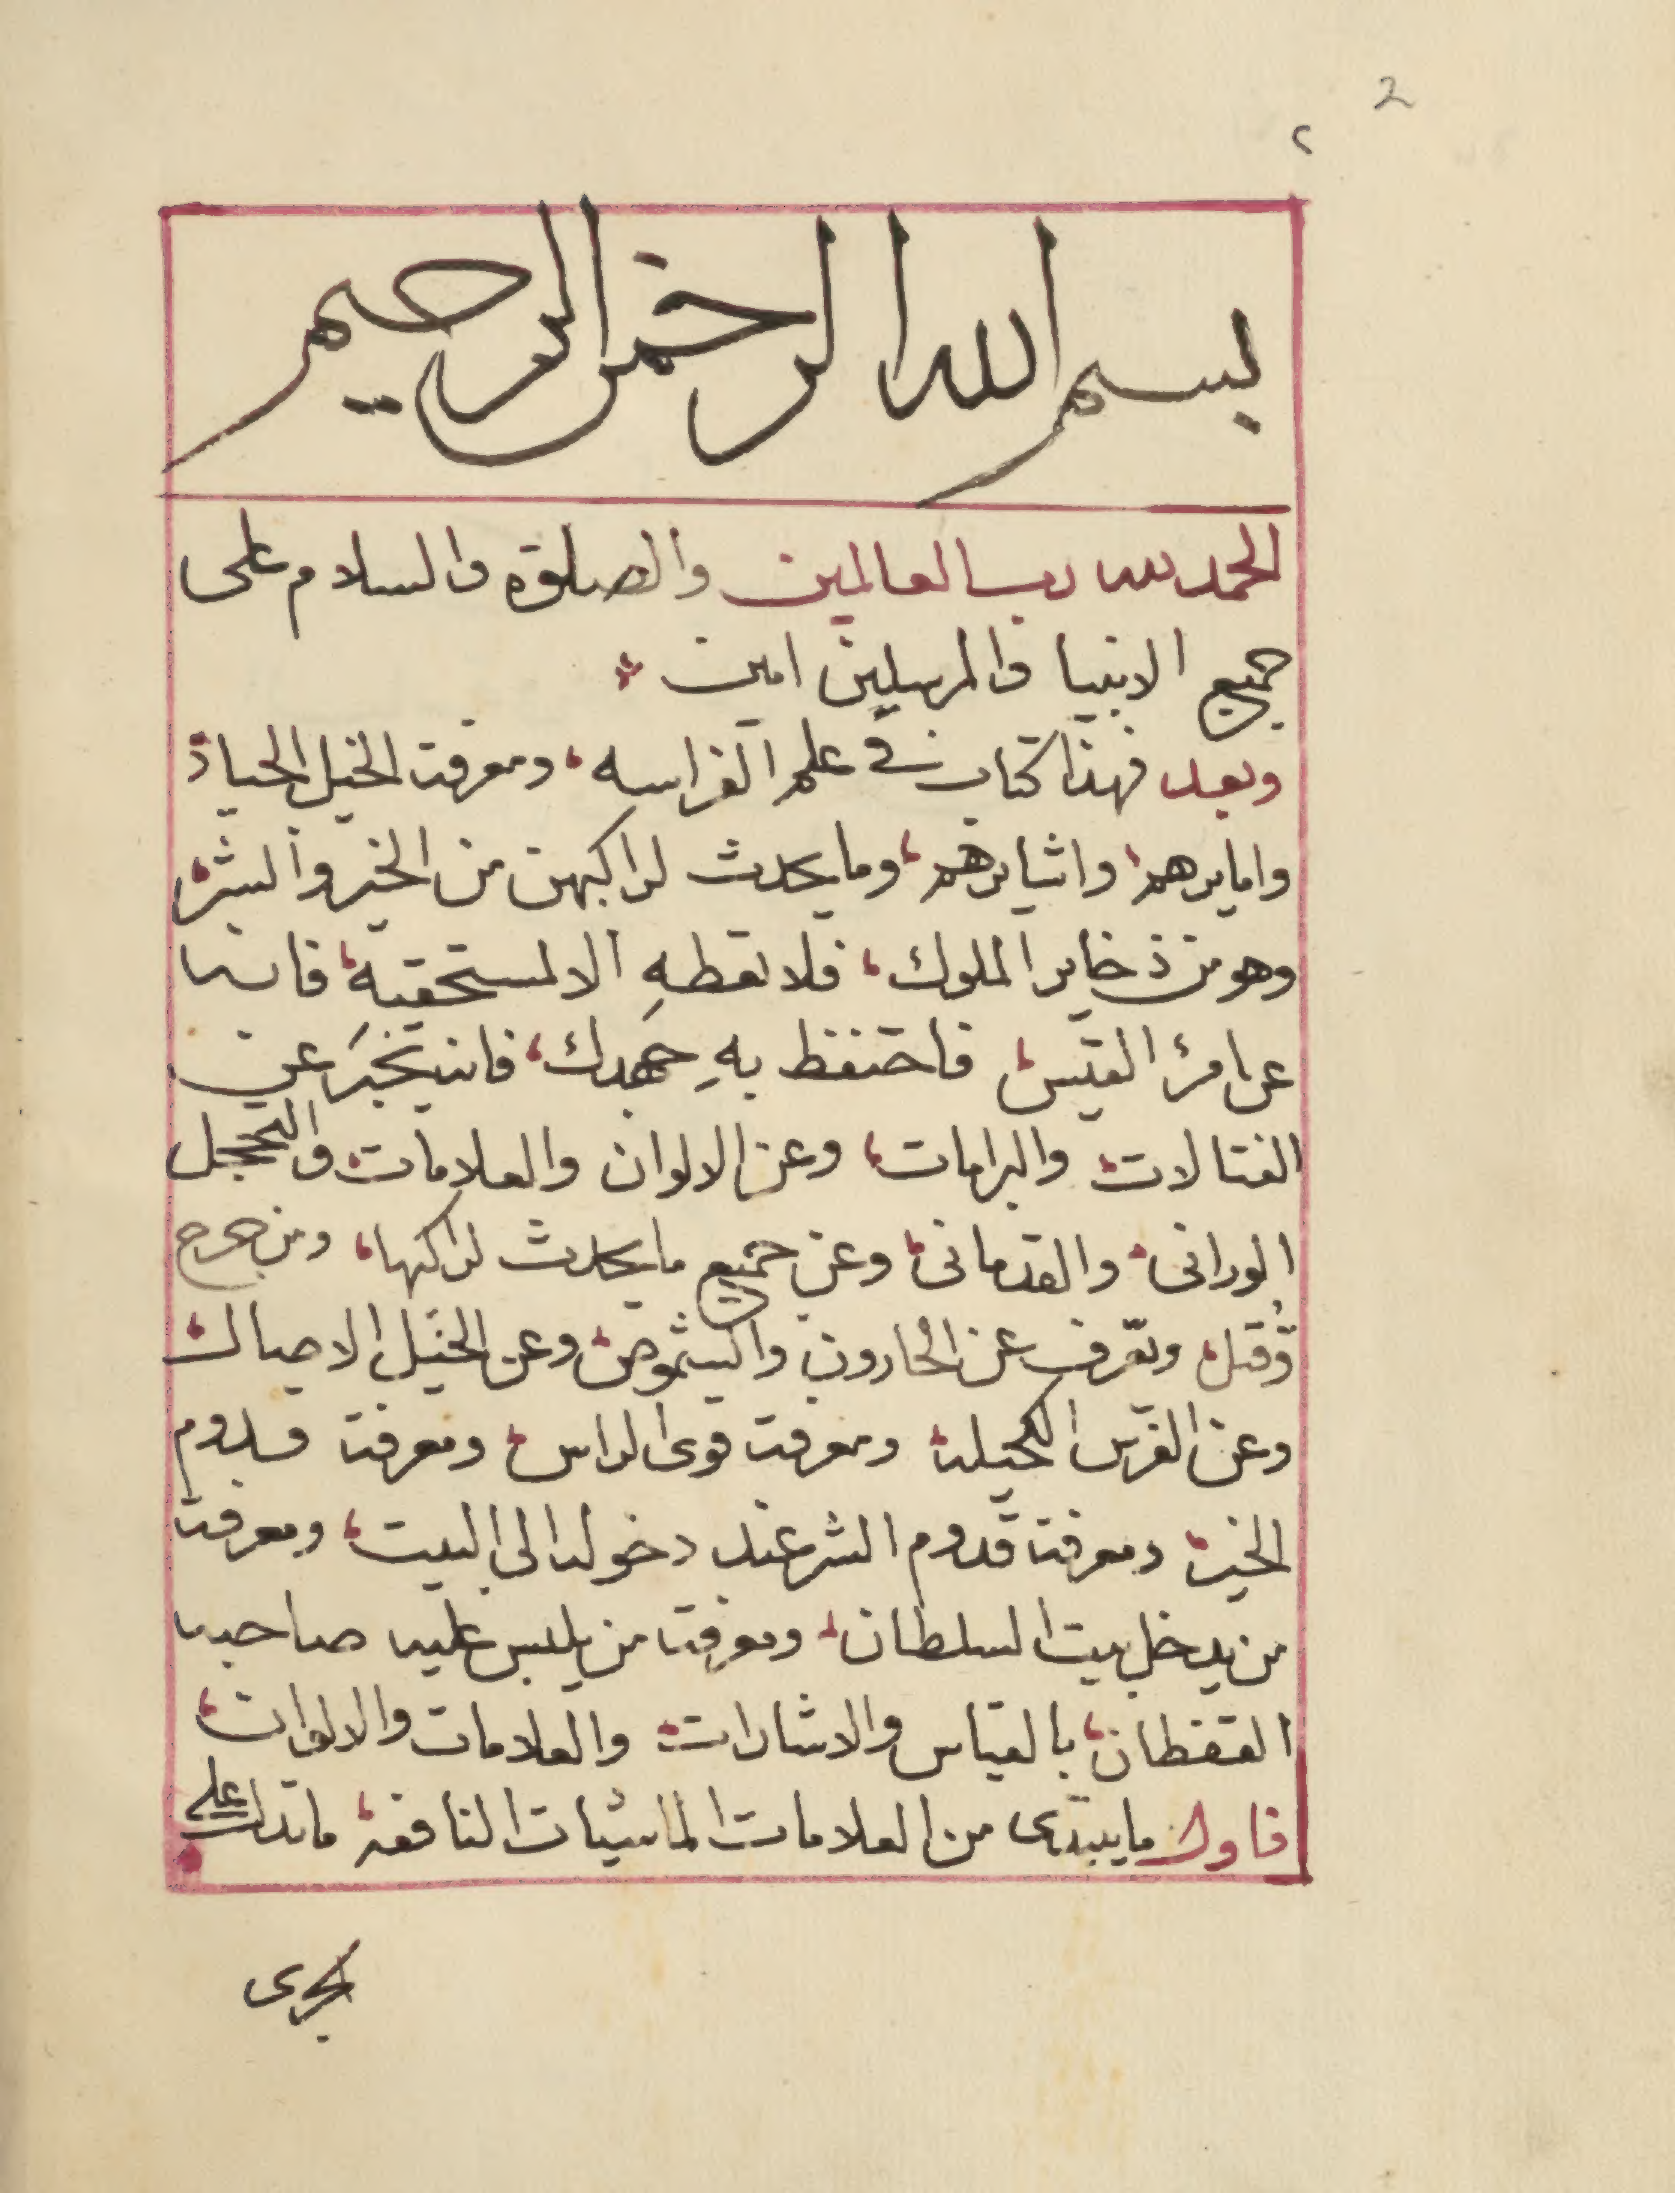 2
٢
بسم الله الرحمن الرحيم
الحمد لله رب العالمين والصلوة والسلام على
جميع الانبيا والمرسلين امين
وبعد فهذا كتاب في علم الفراسه، ومعرفة الخيل الجياد
وامايرهم، واشايرهم، وما يحدث لراكبهن من الخير والشر،
وهو من ذخاير الملوك، فلا تعطهِ الا لمستحقيه، فانه
عن امرئ القيس، فاحتفظ بهِ جهدك، فانه يخبَر عن
الفتالات، والبرامات، وعن الالوان والعلامات، والتحجيل
الورانى، والقدمانى، وعن جميع ما يحدث لراكبها، ومن جرح
وقتل، وتعرف عن الحارون والشموص، وعن الخيل الاصال،
وعن الفرس الكحيلة، ومعرفة قوى الراس، ومعرفة قدوم
الخير، ومعرفة قدوم الشر عند دخوله الى البيت، ومعرفة
من يدخل بيت السلطان، ومعرفة من يلبس عليه صاحبه
القفطان، بالقياس والاشارات، والعلامات والالوان،
فاول ما يبتدى من العلامات الماشيات النافعة، ما تدل على
مجرى